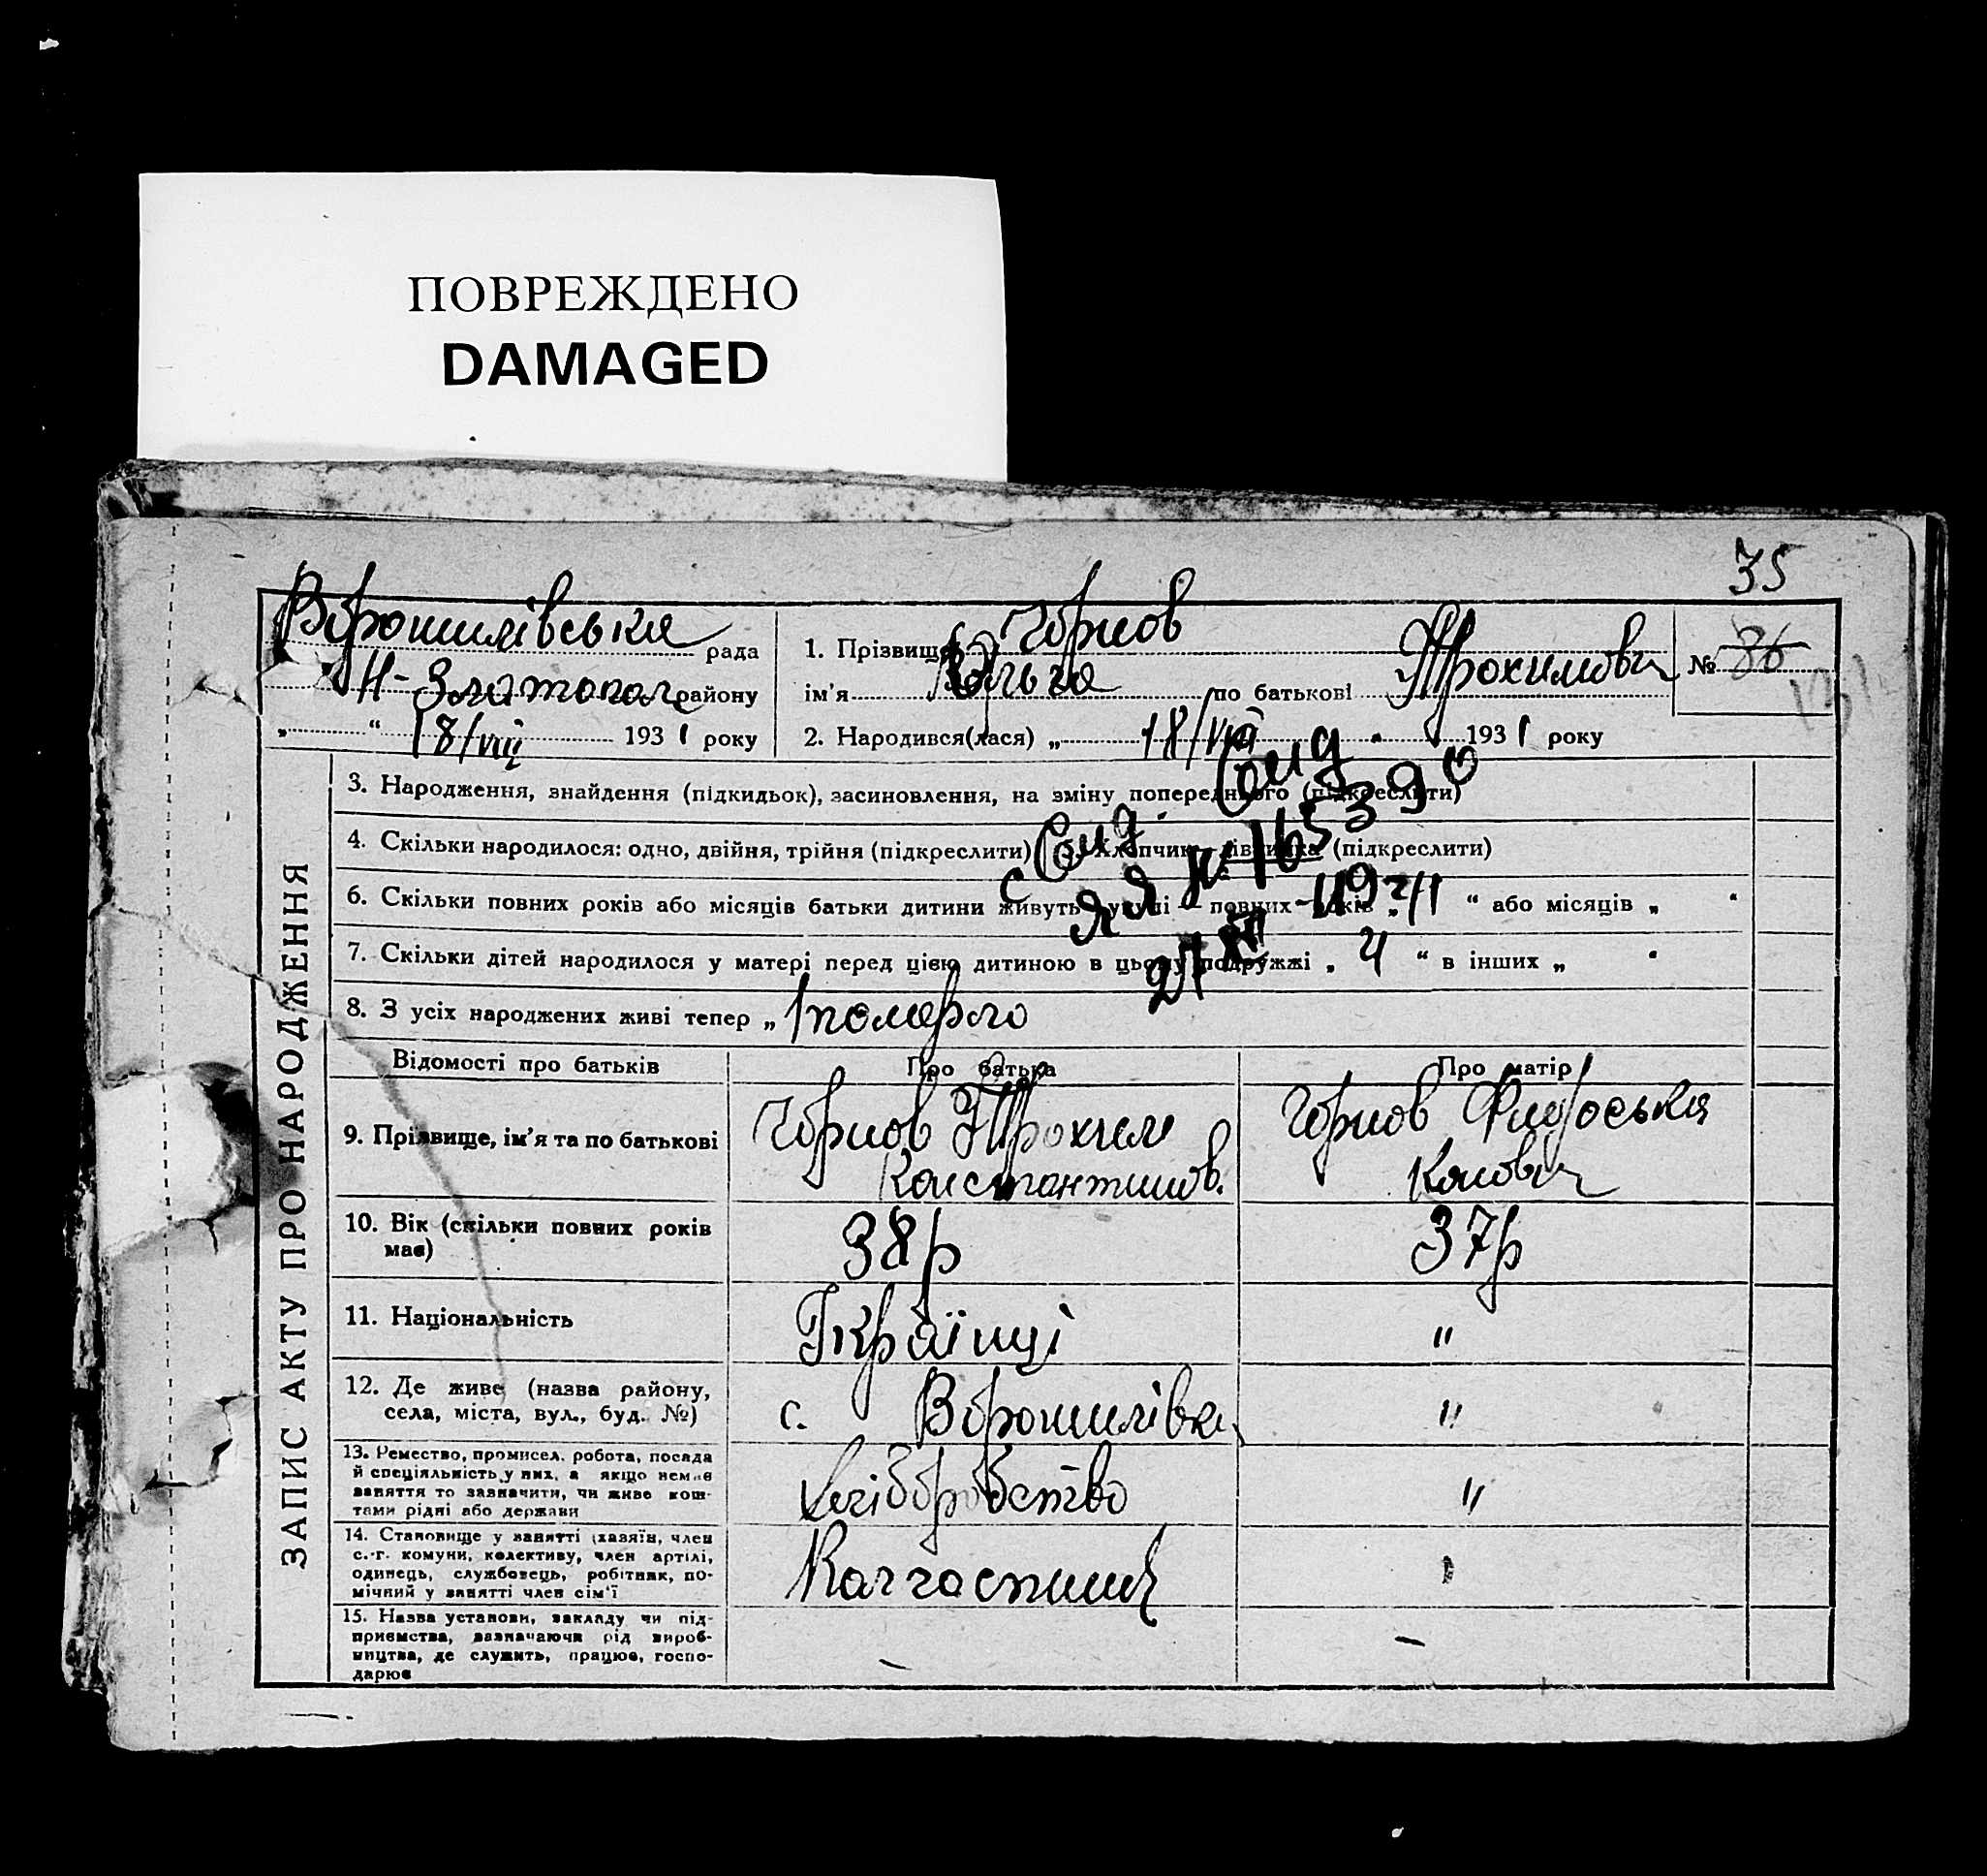 ПОВРЕЖДЕНО
DAMAGED
35
Ворошилівська рада
Н-Златопол району
„ “ 18/VIII 1931 року
1. Прізвище Горнов
ім'я Вольга по батькові Трохимовн
№ 86
2. Народився(лася) „ 18/VIII 1931 року
3. Народження, знайдення (підкидьок), засиновлення, на зміну попереднього (підкреслити)
4. Скільки народилося: одно, двійня, трійня (підкреслити) 5. Хлопчик, дівчинка (підкреслити)
6. Скільки повних років або місяців батьки дитини живуть укупі — повних років „ “ або місяців „ “
7. Скільки дітей народилося у матері перед цією дитиною в цьому подружжі „ 4 “ в інших „ “
8. З усіх народжених живі тепер „ 1 померло
ЗАПИС АКТУ ПРО НАРОДЖЕННЯ
Відомості про батьків Про батька Про матір
9. Прізвище, ім'я та по батькові
Горнов Трохим
Константинов.
Горнов
10. Вік (скільки повних років
має)
38р
37р
11. Національність
Країнці
"
12. Де живе (назва району,
села, міста, вул., буд. №)
с. Ворошилівка
"
13. Ремество, промисел, робота, посада
й спеціяльність у них, а якщо немає
заняття то зазначити, чи живе кош-
тами рідні або держави
хліборобство
"
14. Становище у занятті (хазяїн, член
с.-г. комуни, колективу, член артілі,
одинець, службовець, робітник, по-
мічний у занятті член сім'ї
Колгоспник
15. Назва установи, закладу чи під-
приємства, зазначаючи рід вироб-
ництва, де служить, працює, госпо-
дарює
—
—